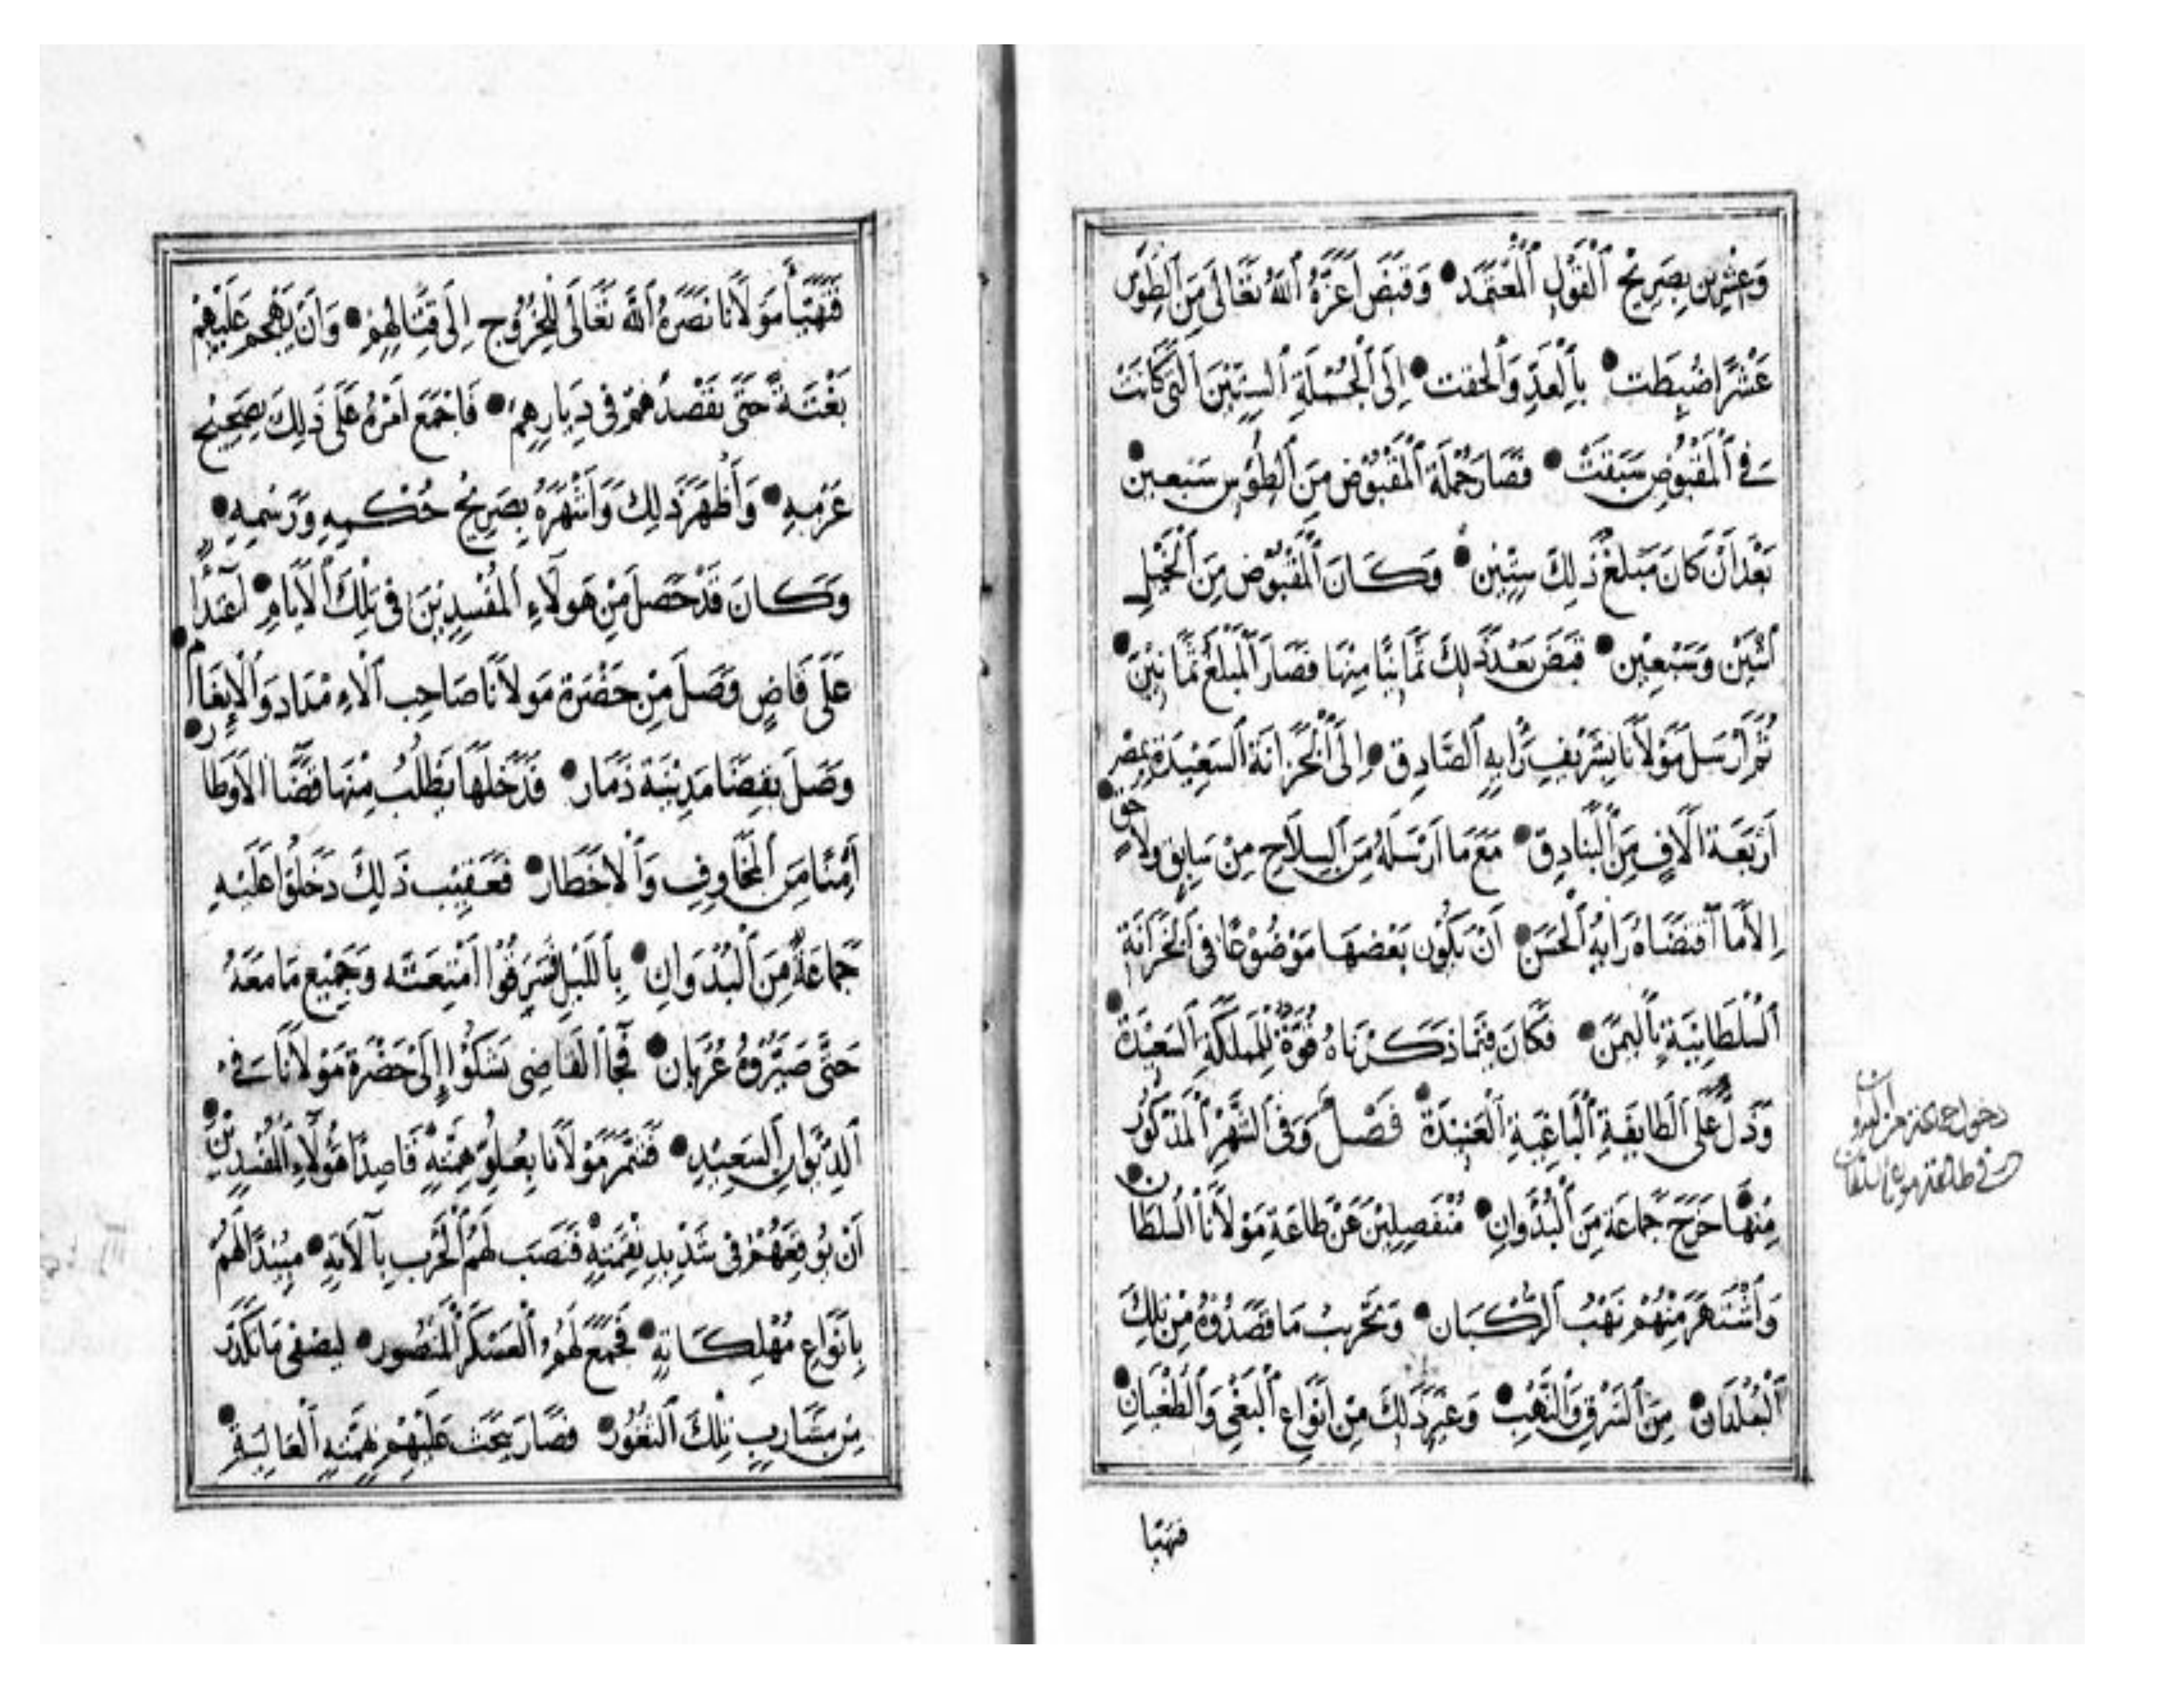 وَعِشْرِين بِصَرِيْحِ ٱلْقَوْلِ ٱلْمُعْتَمَد ● وَقَبَضَ اَعَزَّهُ ٱللهُ تَعَالَى مِنَ ٱلطُّوَسِ
عَشْرًا ضُبِطَت ● بِٱلْعَدِّ وَٱلحفت ● اِلَى ٱلْجُمْلَةِ ٱلسِّتِّيْنَ ٱلَّتِى كَانَتْ
فِى ٱلْمَقْبُوضِ سَبَقَتْ ● فَصَارَ جُمْلَة ٱلْمَقْبُوْض مِنَ ٱلطُّوَسِ سَبْعِيْن ●
بَعْدَ اَنْ كَانَ مَبْلَغُ ذٰلِكَ سِتِّيْن ● وَكَانَ ٱلْمَقْبُوْض مِنَ ٱلْخَيْلِ
ٱثْنَيْن وَسَبْعِيْن ● قَبَضَ بَعْدَ ذٰلِكَ ثَمَانِيًا مِنْهَا فَصَارَ ٱلْمَبْلَغُ ثَمَانِيْن ●
ثُمَّ اَرْسَلَ مَوْلَانَا بِشَرِيْفِ رَأيِهِ ٱلصَّادِق ● اِلَى ٱلْخَزَانَة ٱلسَّعِيْدَة بِمِصْر
اَرْبَعَة اٰلَافٍ مِنَ ٱلْبَنَادِق ● مَعَ مَا اَرْسَلَهُ مِنَ ٱلسِّلَاحِ مِنْ سَابِقٍ وَلَاحِق ●
اِلَّا مَا ٱقْتَضَاهُ رَايُهُ ٱلْحَسَن ● اَنْ يَكُوْن بَعْضهَا مَوْضُوْعًا فِى ٱلْخَزَانَة
ٱلسُّلْطَانِيَّة بِٱليَمَن ● فَكَانَ فِيْمَا ذَكَرْنَاهُ قُوَّةٌ لِلْمَمْلَكَةِ ٱلسَّعِيْدَة ●
وَذُلٌّ عَلَى ٱلطَّايِفَةِ ٱلْبَاغِيَةِ ٱلْعَنِيْدَة ● فَصْلٌ وَفِى ٱلشَّهْرِ ٱلْمَذْكُوْر
مِنْهَا خَرَجَ جَمَاعَة مِنَ ٱلْبُدْوَانِ ● مُنْفَصِلِيْنَ عَنْ طَاعَةِ مَوْلَانَا ٱلسُّلْطَان ●
وَٱشْتَهَرَ مِنْهُمْ نَهْبُ ٱلرُّكْبَان ● وَتَخْرِيْبُ مَا قَصَدُوْهُ مِنْ تِلْكَ
ٱلْبُلْدَان ● مِنَ ٱلسَّرْقِ وَٱلنَّهْبِ ● وَغَيْرِ ذٰلِكَ مِنْ اَنْوَاعِ ٱلْبَغْىِ وَٱلطُّغْيَانِ ●
فتهيأ
خروج جماعة من البدوان
عن طاعة مولانا السلطان
فَتَهَيَّأَ مَوْلَانَا نَصَرَهُ ٱللهُ تَعَالَى لِلْخُرُوْجِ اِلَى قِتَالِهِمْ ● وَاَنْ يَهْجُمَ عَلَيْهِمْ
بَغْتَةً حَتَّى يَقْصِدَهُمْ فِى دِيَارِهِمْ ● فَاَجْمَعَ اَمْرَهُ عَلَى ذٰلِكَ بِصَحِيْحِ
عَزْمِهِ ● وَأَظْهَرَ ذٰلِكَ وَاَشْهَرَهُ بِصَرِيْحِ حُكْمِهِ وَرَسْمِهِ ●
وَكَانَ قَدْ حَصَلَ مِنْ هَوُلَاءِ ٱلْمُفْسِدِيْنَ فِى تِلْكَ ٱلْاَيَّامِ ● اعْتِدَاءٌ
عَلَى قَاضٍ وَصَلَ مِنْ حَضْرَة مَوْلَانَا صَاحِب ٱلْاِمْدَاد وَٱلْاِنْعَام ●
وَصَلَ بِقَضَا مَدِيْنَة ذَمَار ● فَدَخَلَهَا يَطْلُبُ مِنْهَا قَضَا ٱلْاَوْطَار ●
اٰمِنًا مِنَ ٱلْمَخَاوِفِ وَٱلْاَخْطَار ● فَعَقِيْب ذٰلِكَ دَخَلُوْا عَلَيْهِ
جَمَاعَةٌ مِنَ ٱلْبُدْوَانِ ● بِٱللَّيْلِ فَسَرَقُوْا اَمْتِعَتَه وَجَمِيْع مَا مَعَهُ
حَتَّى صَيَّرُوْهُ عُرْيَان ● فَجَآ ٱلقَاضِى يَشْكُوْا اِلَى حَضْرَة مَوْلَانَا فِى
ٱلدِّيْوَانِ ٱلسَّعِيْدِ ● فَشَمَّرَ مَوْلَانَا بِعُلُوِّ هِمَّتِهِ قَاصِدًا هٰؤُلَاءِ ٱلْمُفْسِدِيْنَ ●
اَنْ يُوْقِعَهُمْ فِى شَدِيْدِ نِقْمَتِهِ ● فَنَصَب لَهُمُ ٱلْحَرْب بِآلَاتِهِ ● مُبِيْدًا لَهُمْ
بِاَنْوَاعِ مُهْلِكَاتِهِ ● فَجَمَعَ لَهُمُ ٱلْعَسْكَرَ ٱلْمَنْصُور ● لِيُصْفِى مَا تَكَدَّرَ
مِنْ مَشَارِبِ تِلْكَ ٱلثُّغُوْر ● فَصَارَ يَبْحَث عَلَيْهِمْ بِهِمَّتِهِ ٱلْعَالِيَة ●